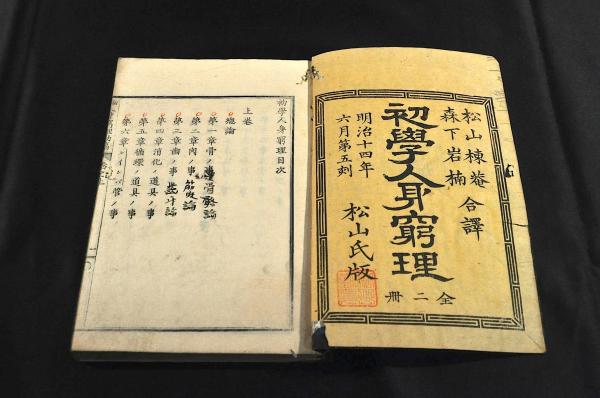 松山棟庵
森下岩楠
合譯
初學人身窮理
全二冊
明治十四年
六月第五刻
松山氏版
初學人身窮理目次
上卷
總論
第一章骨ノ事 論
第二章肉ノ事 筋肉論
第三章齒ノ事 論
第四章消化ノ道具ノ事
第五章循環ノ道具ノ事
第六章 管ノ事